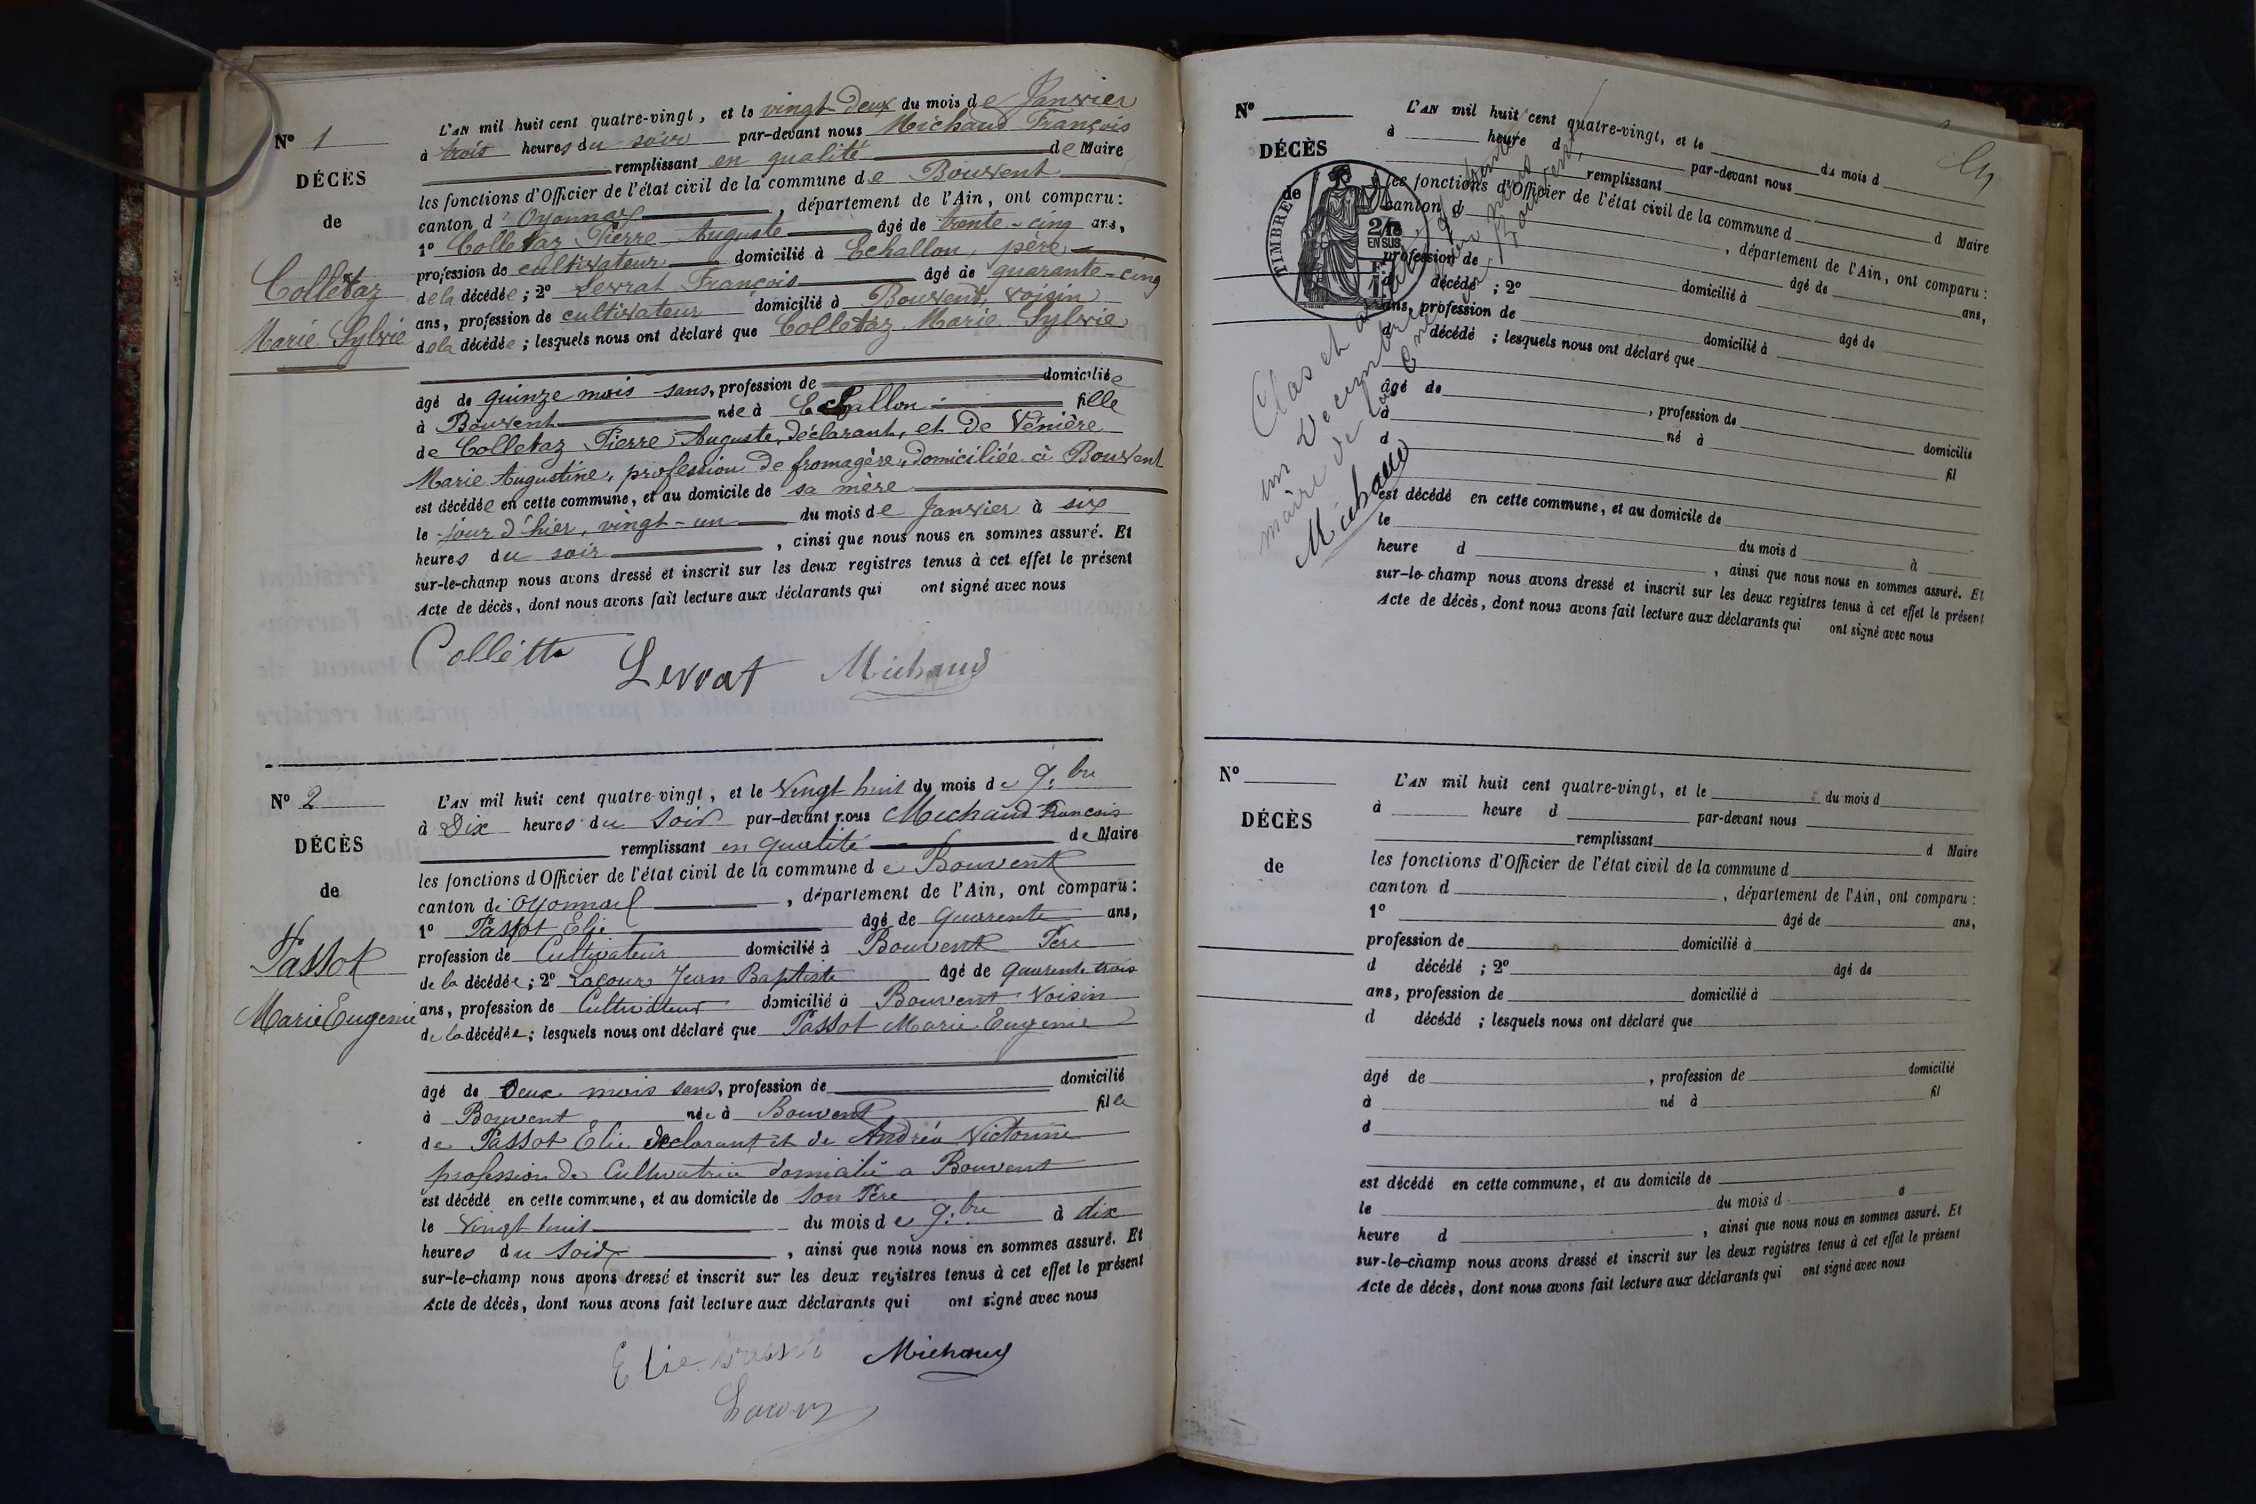 N° 1
DÉCÈS
de
Colletaz
Marie Sylvie
L'AN mil huit cent quatre-vingt, et le vingt-deux du mois de Janvier
à trois heures du soir par-devant nous Michaud François
remplissant en qualité de Maire
les fonctions d'Officier de l'état civil de la commune de Bouvent
canton d'Oyonnax, département de l'Ain, ont comparu:
1° Colletaz Pierre Auguste âgé de trente-cinq ans,
profession de cultivateur domicilié à Echallon, père
de la décédée; 2° Levrat François âgé de quarante-cinq
ans, profession de cultivateur domicilié à Bouvent, voisin
de la décédée; lesquels nous ont déclaré que Colletaz Marie Sylvie
âgé de quinze mois sans, profession de domiciliée
à Bouvent née à Echallon fille
de Colletaz Pierre Auguste, déclarant, et de Vénière
Marie Augustine, profession de fromagère, domiciliée à Bouvent
est décédée en cette commune, et au domicile de sa mère
le jour d'hier, vingt-un du mois de Janvier à six
heures du soir, ainsi que nous nous en sommes assuré. Et
sur-le-champ nous avons dressé et inscrit sur les deux registres tenus à cet effet le présent
Acte de décès, dont nous avons fait lecture aux déclarants qui ont signé avec nous
Collétta Levrat Michaud
N° 2
DÉCÈS
de
Passot
Marie Eugenie
L'AN mil huit cent quatre-vingt, et le Vingt huit du mois de 9.bre
à Dix heures du Soir par-devant nous Michaud Francois
remplissant en qualité de Maire
les fonctions d'Officier de l'état civil de la commune de Bouvent
canton d'Oyonnax, département de l'Ain, ont comparu:
1° Passot Elie âgé de quarente ans,
profession de Cultivateur domicilié à Bouvent Père
de la décédée; 2° Lacour Jean Baptiste âgé de quarente trois
ans, profession de Cultivateur domicilié à Bouvent Voisin
de la décédée; lesquels nous ont déclaré que Passot Marie Eugenie
âgé de Deux mois sans, profession de domicilié
à Bouvent née à Bouvent fille
de Passot Elie declarant et de Andréa Victorine
profession de Cultivatrice domicilié a Bouvent
est décédé en cette commune, et au domicile de Son Père
le Vingt huit du mois de 9.bre à dix
heures du Soir, ainsi que nous nous en sommes assuré. Et
sur-le-champ nous avons dressé et inscrit sur les deux registres tenus à cet effet le présent
Acte de décès, dont nous avons fait lecture aux déclarants qui ont signé avec nous
Elie Michaud
Lacour
N°
DÉCÈS
de
TIMBRE
2/10
EN SUS
L'AN mil huit cent quatre-vingt, et le du mois d
à heure d par-devant nous
remplissant d Maire
les fonctions d'Officier de l'état civil de la commune d
canton d, département de l'Ain, ont comparu:
âgé de ans,
profession de domicilié à
d décédé; 2° âgé de
ans, profession de domicilié à
d décédé; lesquels nous ont déclaré que
âgé de, profession de domicilié
à né à fil
d
est décédé en cette commune, et au domicile de
le du mois d à
heure d, ainsi que nous nous en sommes assuré. Et
sur-le-champ nous avons dressé et inscrit sur les deux registres tenus à cet effet le présent
Acte de décès, dont nous avons fait lecture aux déclarants qui ont signé avec nous
Clos et
un Decembre par nous
maire de la Cne Bouvent
Michaud
N°
DÉCÈS
de
L'AN mil huit cent quatre-vingt, et le du mois d
à heure d par-devant nous
remplissant d Maire
les fonctions d'Officier de l'état civil de la commune d
canton d, département de l'Ain, ont comparu:
1° âgé de ans,
profession de domicilié à
d décédé; 2° âgé de
ans, profession de domicilié à
d décédé; lesquels nous ont déclaré que
âgé de, profession de domicilié
à né à fil
d
est décédé en cette commune, et au domicile de
le du mois d à
heure d, ainsi que nous nous en sommes assuré. Et
sur-le-champ nous avons dressé et inscrit sur les deux registres tenus à cet effet le présent
Acte de décès, dont nous avons fait lecture aux déclarants qui ont signé avec nous